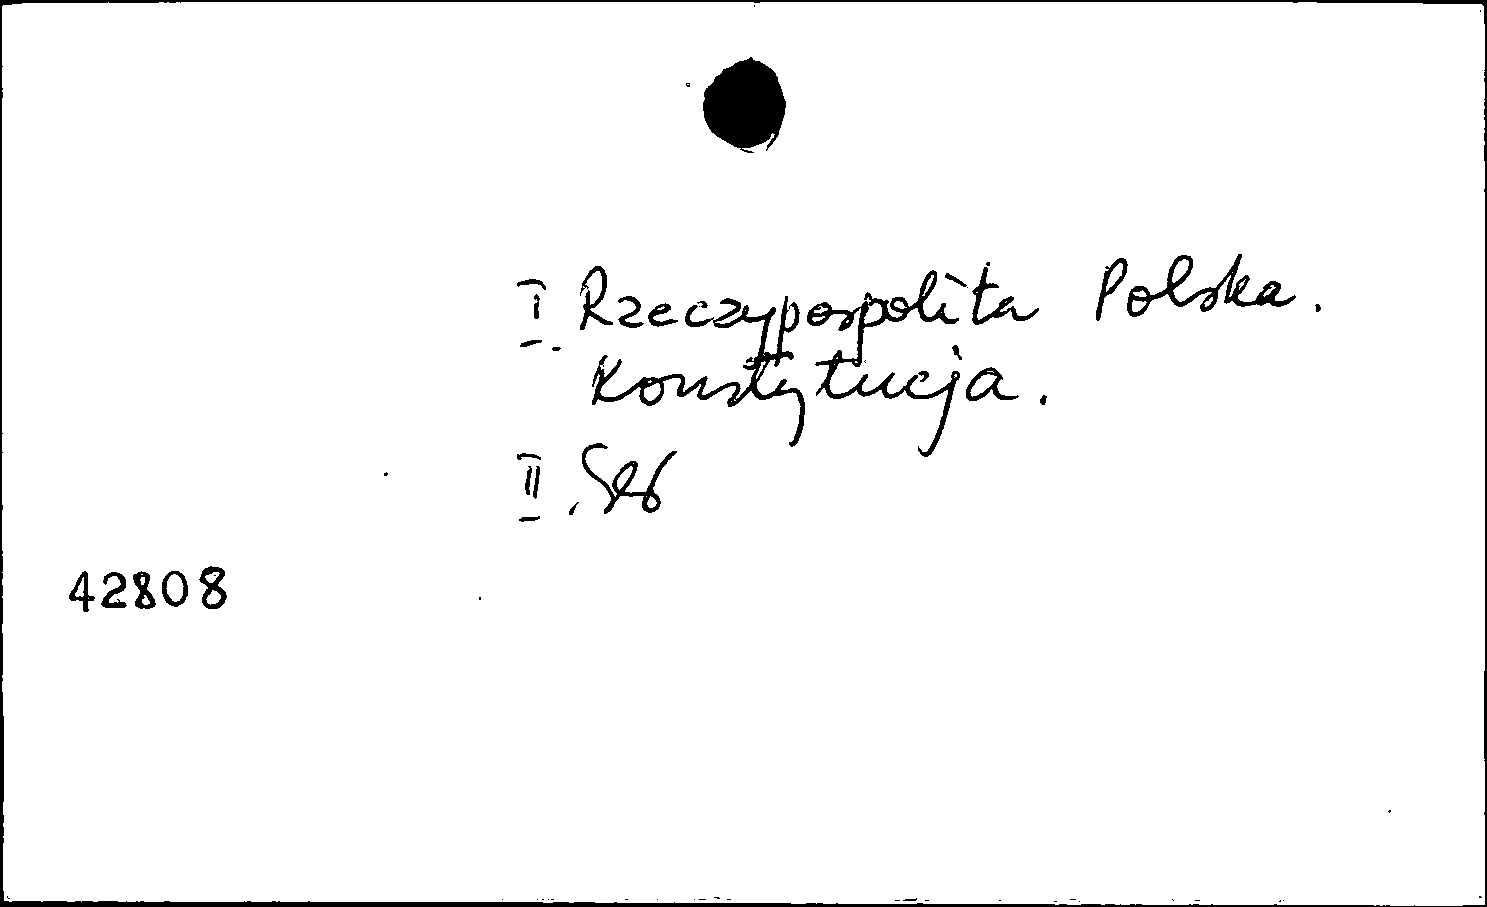 I. Rzeczypospolita Polska.
Konstytucja.
II.
42808